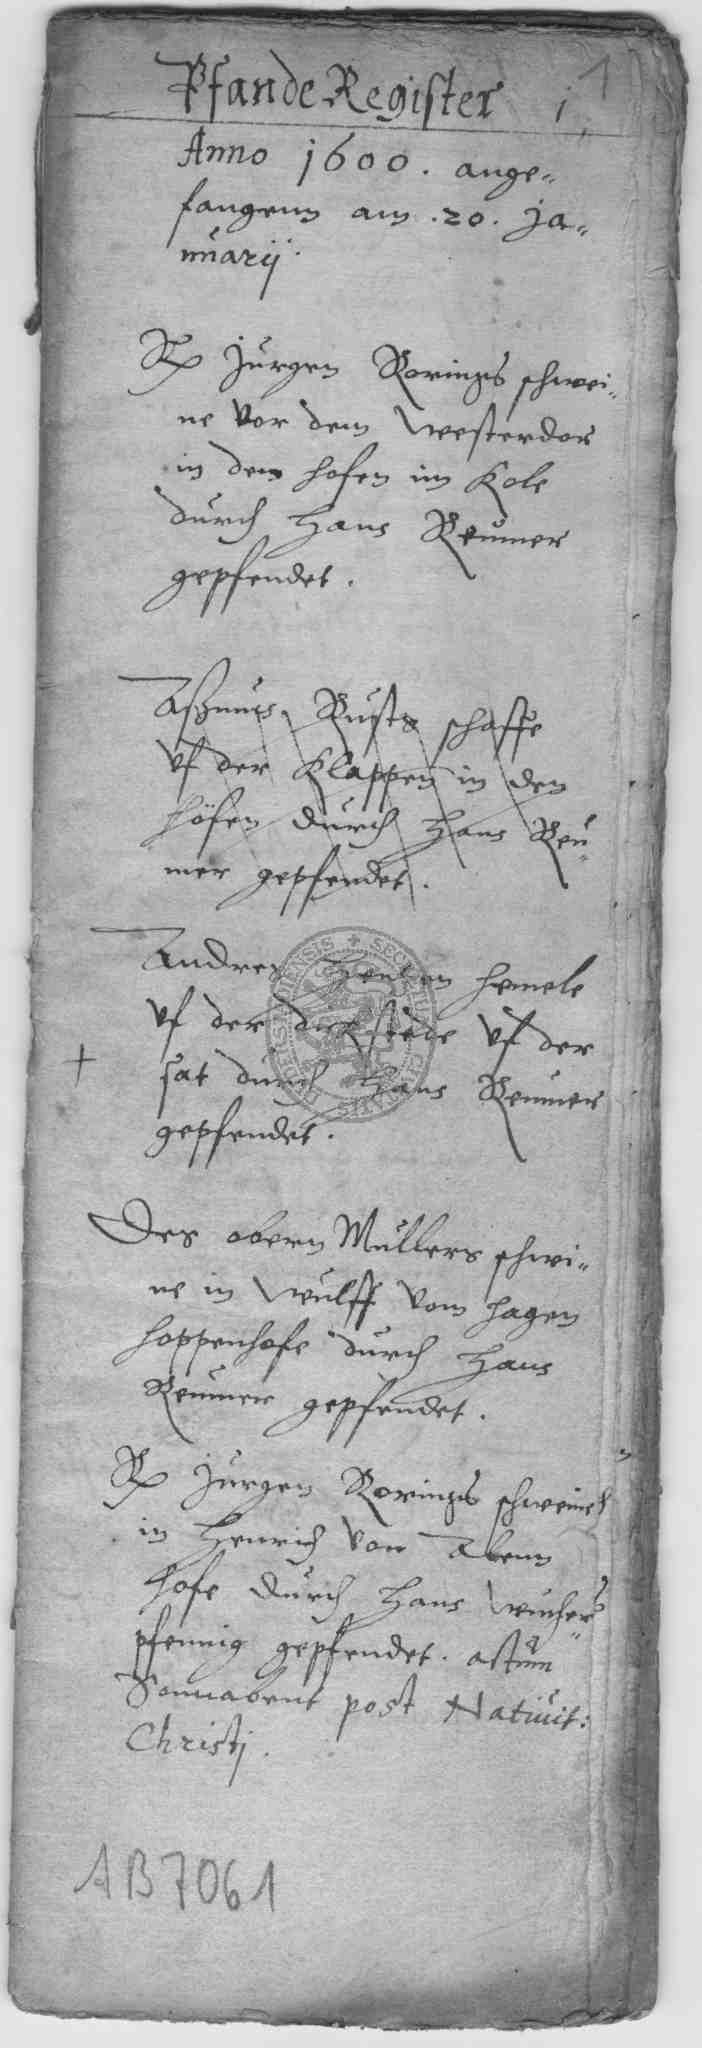 1
PfandeRegister 1
Anno 1600. ange„
fangenn am .20. Ja„
nuarij.
Rx Jurgen Rorings schwei„
ne vor dem Westerdor
in den hofen im Kole
durch Hans Reumer
gepfendet.
Aßmus Rusts schaffe
vf der Klappen in den
höfen durch Hans Reu„
mer gepfendet.
Andres hemele
vf der vf der
+ sat durch Hans Reumer
gepfendet.
Des obern Mullers schwi„
ne in Wulff vom Hagen
hoppenhofe durch Hans
Reumer gepfendet.
Rx Jurgen Rorings schweine
in Henrich von
hofe durch Hans Wucher„
pfennig gepfendet. actum
Sonnabent post Nativit:
Christj.
AB7061